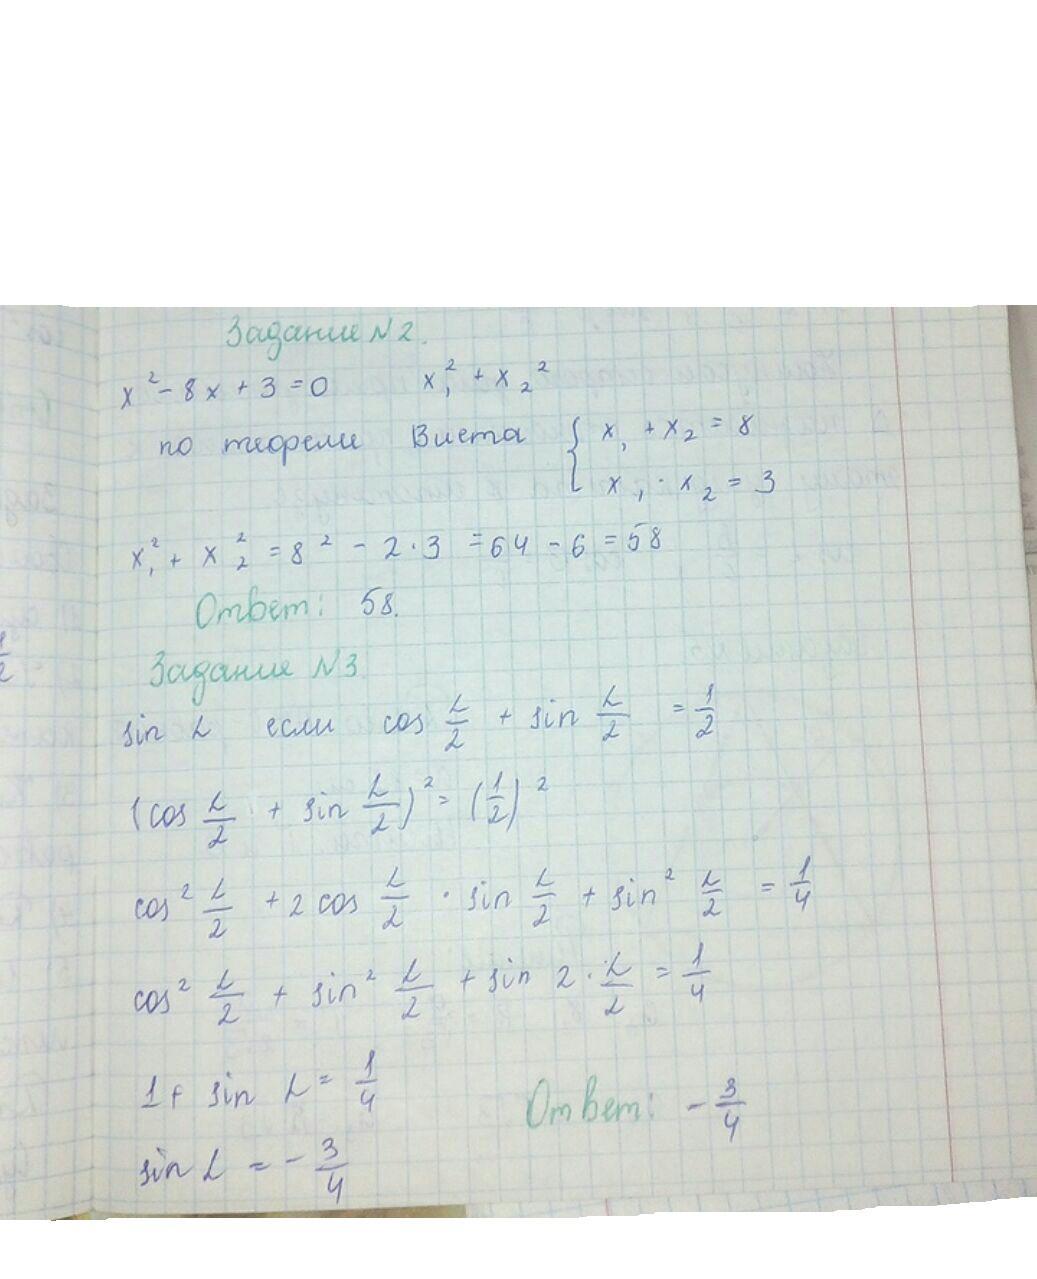 Задание N2.
x² - 8x + 3 = 0   x₁² + x₂²
по теореме Виета { x₁ + x₂ = 8
x₁ · x₂ = 3
x₁² + x₂² = 8² - 2·3 = 64 - 6 = 58
Ответ: 58.
Задание N3
sin α если cos α/2 + sin α/2 = 1/2
(cos α/2 + sin α/2)² = (1/2)²
cos² α/2 + 2 cos α/2 · sin α/2 + sin² α/2 = 1/4
cos² α/2 + sin² α/2 + sin 2 · α/2 = 1/4
1 + sin α = 1/4
Ответ: - 3/4
sin α = - 3/4